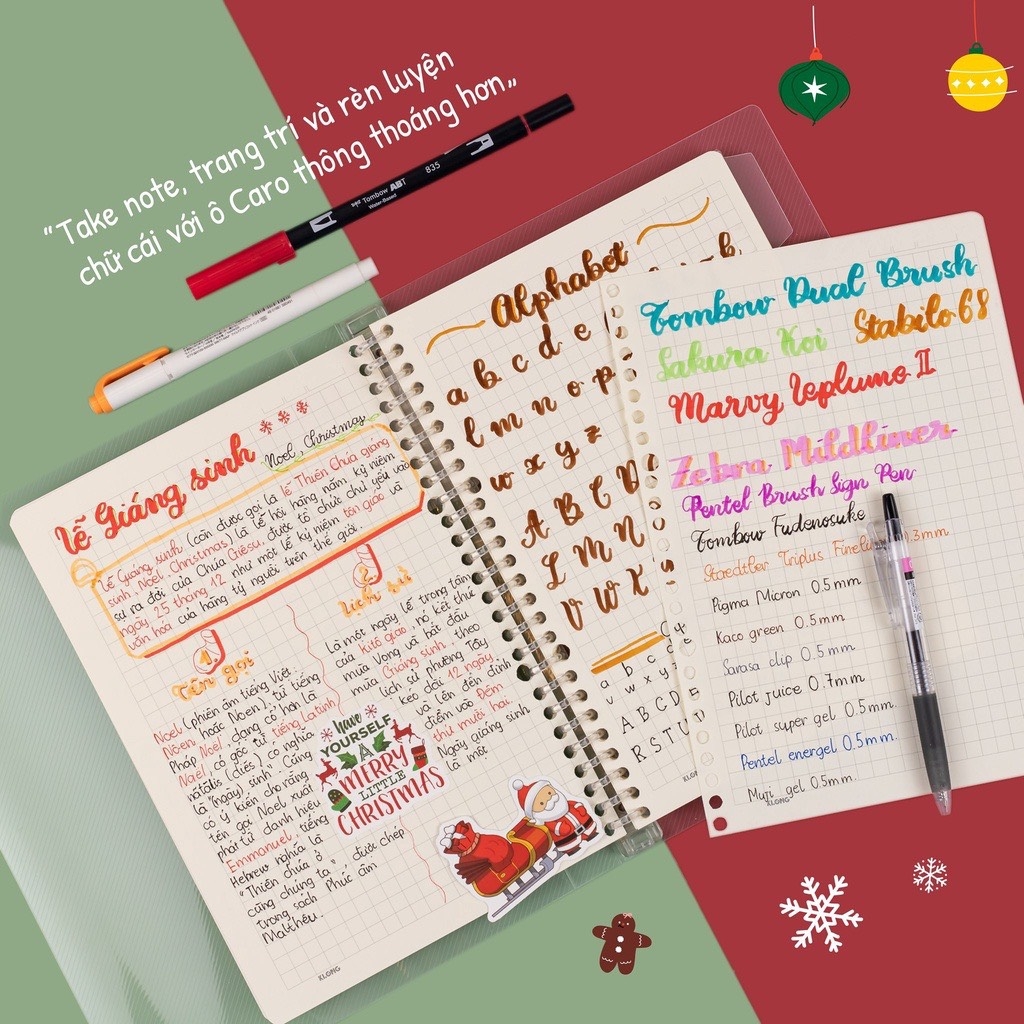 “Take note, trang trí và rèn luyện
chữ cái với ô Caro thông thoáng hơn„
Tombow ABT
835
Water-Based
Lễ Giáng sinh
Noel, Christmas
Lễ Giáng sinh (còn được gọi là lễ Thiên Chúa giáng
sinh, Noel, Christmas) là lễ hội hàng năm kỷ niệm
sự ra đời của Chúa Giêsu, được tổ chức chủ yếu vào
ngày 25 tháng 12 như một lễ kỷ niệm tôn giáo và
văn hóa của hàng tỷ người trên thế giới.
1.
Tên gọi
Noel (phiên âm tiếng Việt:
Nôen, hoặc Noen), từ tiếng
Pháp Noël, dạng cổ hơn là
Naël, có gốc từ tiếng Latinh
natālis (diēs) có nghĩa
là "(ngày) sinh". Cũng
có ý kiến cho rằng
tên gọi Noel xuất
phát từ danh hiệu
Emmanuel, tiếng
Hebrew nghĩa là
"Thiên chúa ở
cùng chúng ta", được chép
trong sách Phúc âm
Matthêu.
2.
Lịch sử
Là một ngày lễ trọng tâm
của Kitô giáo, nó kết thúc
mùa Vọng và bắt đầu
mùa Giáng sinh theo
lịch sử phương Tây
kéo dài 12 ngày
và lên đến đỉnh
điểm vào Đêm
thứ mười hai.
Ngày giáng sinh
là một
have
YOURSELF
A
MERRY
LITTLE
CHRISTMAS
KLONG
Alphabet
a b c d e
l m n o p
w x y z
A B C D
L M N
V W X
a b c d
w x y z
A B C D
R S T U
KLONG
Tombow Dual Brush
Sakura Koi Stabilo 68
Marvy Leplume II
Zebra Mildliner
Pentel Brush Sign Pen
Tombow Fudenosuke
Staedtler Triplus Fineliner 0.3mm
Pigma Micron 0.5mm
Kaco green 0.5mm
Sarasa clip 0.5mm
Pilot juice 0.7mm
Pilot super gel 0.5mm.
Pentel energel 0.5mm.
Muji gel 0.5mm.
KLONG